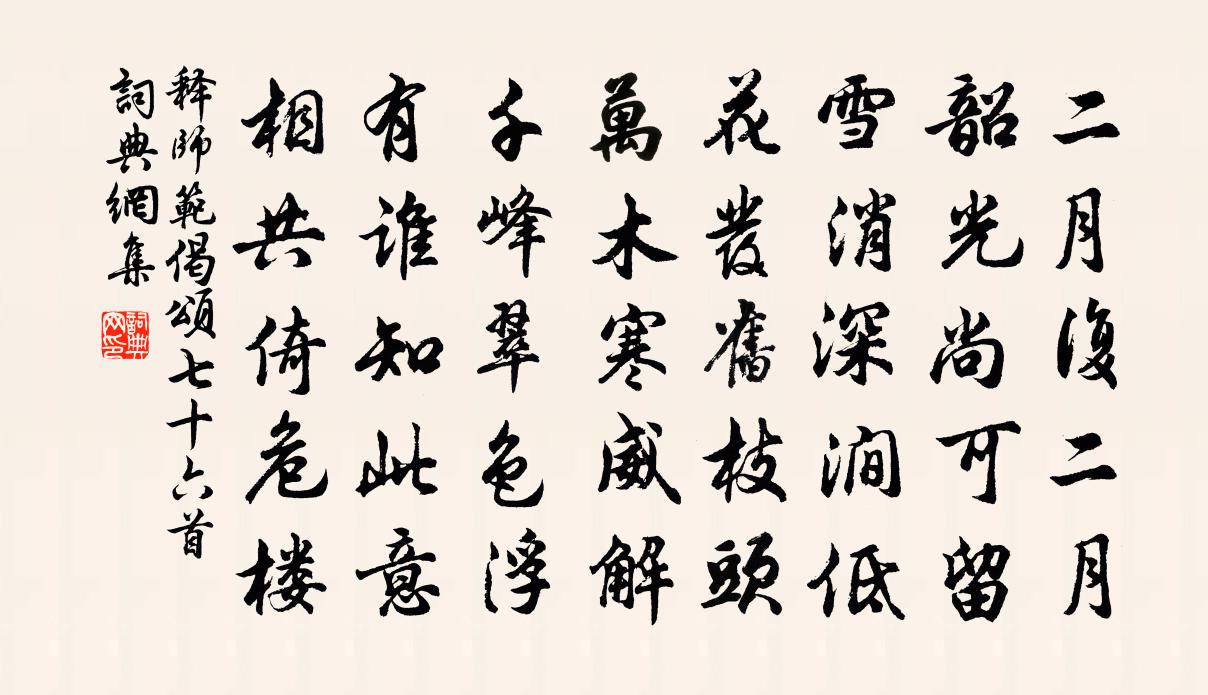 二月復二月
韶光尚可留
雪消深澗低
花發舊枝頭
萬木寒威解
千峰翠色浮
有誰知此意
相共倚危楼
释師範偈頌七十六首
詞典網集
詞典网印